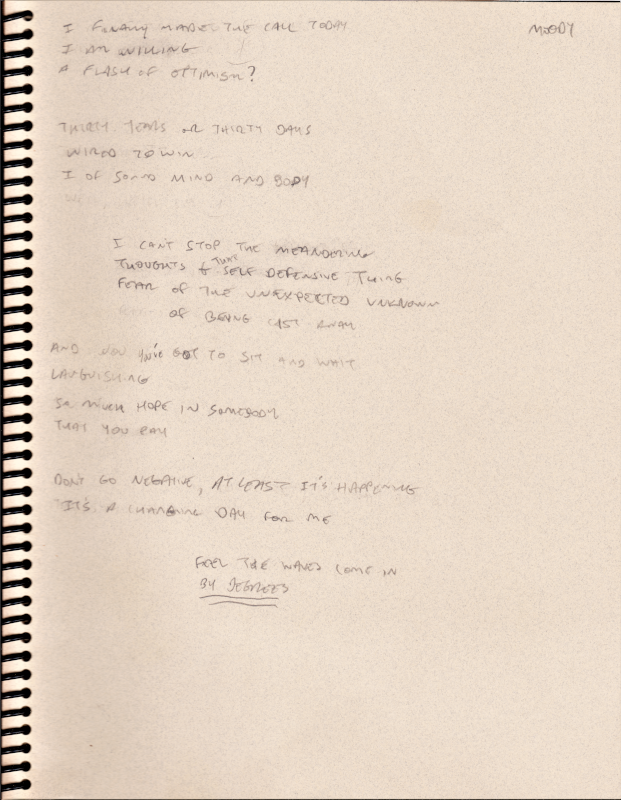 MOODY
I FINALLY MADE THE CALL TODAY
I AM WILLING
A FLASH OF OPTIMISM?
THIRTY YEARS OR THIRTY DAYS
WIRED TO WIN
I OF SOUND MIND AND BODY
I CAN'T STOP THE MEANDERING
THOUGHTS & THAT SELF DEFENSIVE THING
FEAR OF THE UNEXPECTED UNKNOWN
OF BEING CAST AWAY
AND NOW YOU'VE GOT TO SIT AND WAIT
LANGUISHING
SO MUCH HOPE IN SOMEBODY
THAT YOU PAY
DON'T GO NEGATIVE, AT LEAST IT'S HAPPENING
IT'S A CHANGING DAY FOR ME
FEEL THE WAVES COME IN
BY DEGREES